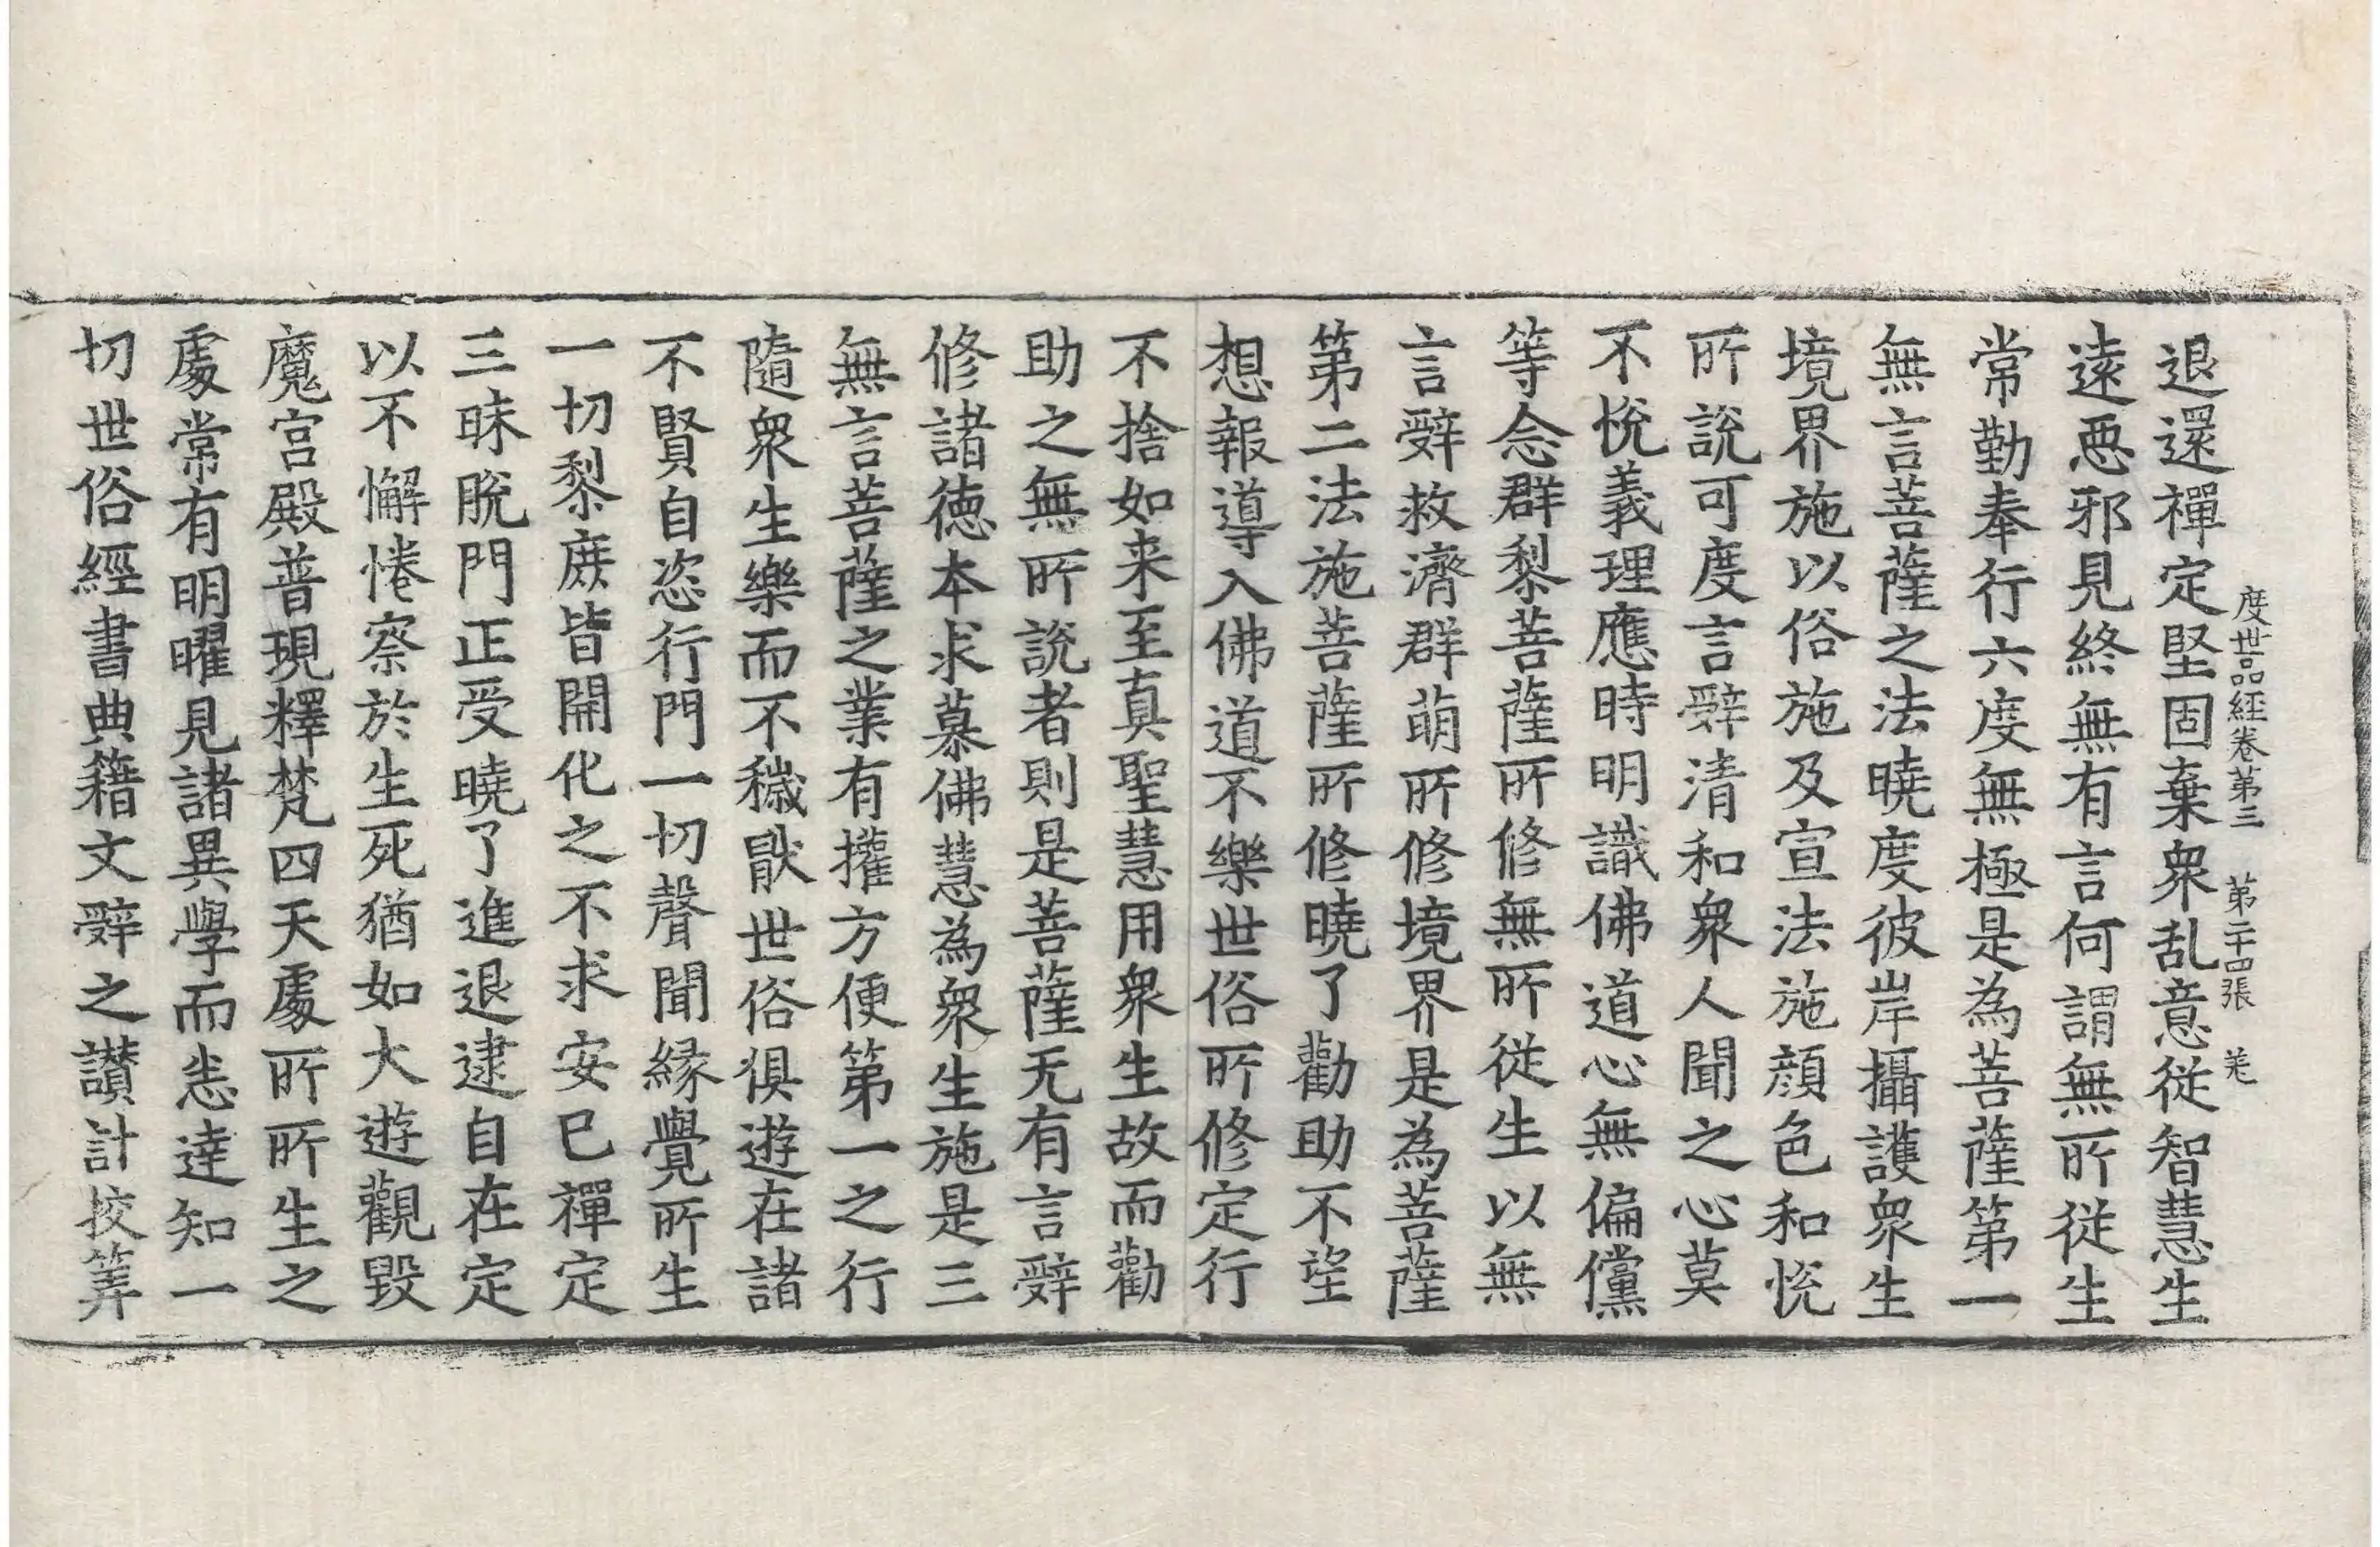 度世品經卷第三　第二十四張　羌
退還禪定堅固棄衆乱意從智慧生
遠惡邪見終無有言何謂無所從生
常勤奉行六度無極是為菩薩第一
無言菩薩之法曉度彼岸攝護衆生
境界施以俗施及宣法施顔色和悅
所說可度言辭清和衆人聞之心莫
不悅義理應時明識佛道心無偏儻
等念群黎菩薩所修無所從生以無
言辭救濟群萌所修境界是為菩薩
第二法施菩薩所修曉了勸助不望
想報導入佛道不樂世俗所修定行
不捨如来至真聖慧用衆生故而勸
助之無所說者則是菩薩无有言辭
修諸徳本求慕佛慧為衆生施是三
無言菩薩之業有權方便第一之行
隨衆生樂而不穢猒世俗俱遊在諸
不賢自恣行門一切聲聞緣覺所生
一切黎庶皆開化之不求安已禪定
三昧脫門正受曉了進退逮自在定
以不懈惓察於生死猶如大遊觀毀
魔宮殿普現釋梵四天處所所生之
處常有明曜見諸異學而恙達知一
切世俗經書典籍文辭之讃計挍筭